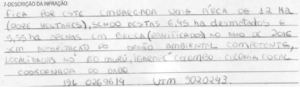 2-DESCRIÇÃO DA INFRAÇÃO
FICA POR ESTE EMBARGADA UMA ÁREA DE 12 HA
(DOZE HECTARES), SENDO DESTAS 6,45 HA DESMATADOS E
5,55 HA APENAS EM BROCA (DANIFICADO) NO ANO DE 2016
SEM AUTORIZAÇÃO DO ORGÃO AMBIENTAL COMPETENTE,
LOCALIZADA NO
COORDENADA DO DANO
19L 0269614 UTM 9020243